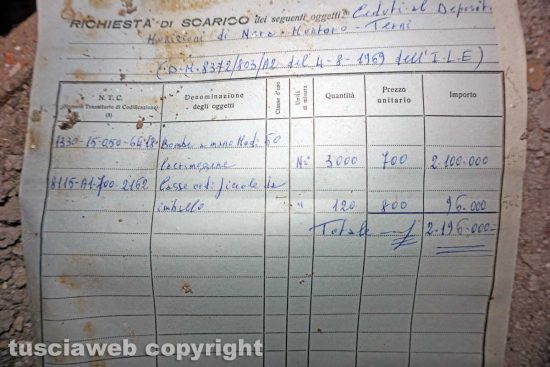 RICHIESTA DI SCARICO dei seguenti oggetti: Ceduti al Deposito
Munizioni di Nera-Montoro-Terni
(D.M. 8372/803/A2 del 4-8-1969 dell'I.L.E)
N. T. C. Denominazione degli oggetti Classe d'uso Unità di misura Quantità Prezzo unitario Importo
(Numero Transitorio di Codificazione)
(3)
1330-15-050-6418 Bombe a mano Mod. 50
lacrimogene N° 3000 700 2.100.000
8115-A1-700-2162 Casse ord. piccole da
imballo " 120 800 96.000
Totale 2.196.000=
tusciaweb copyright